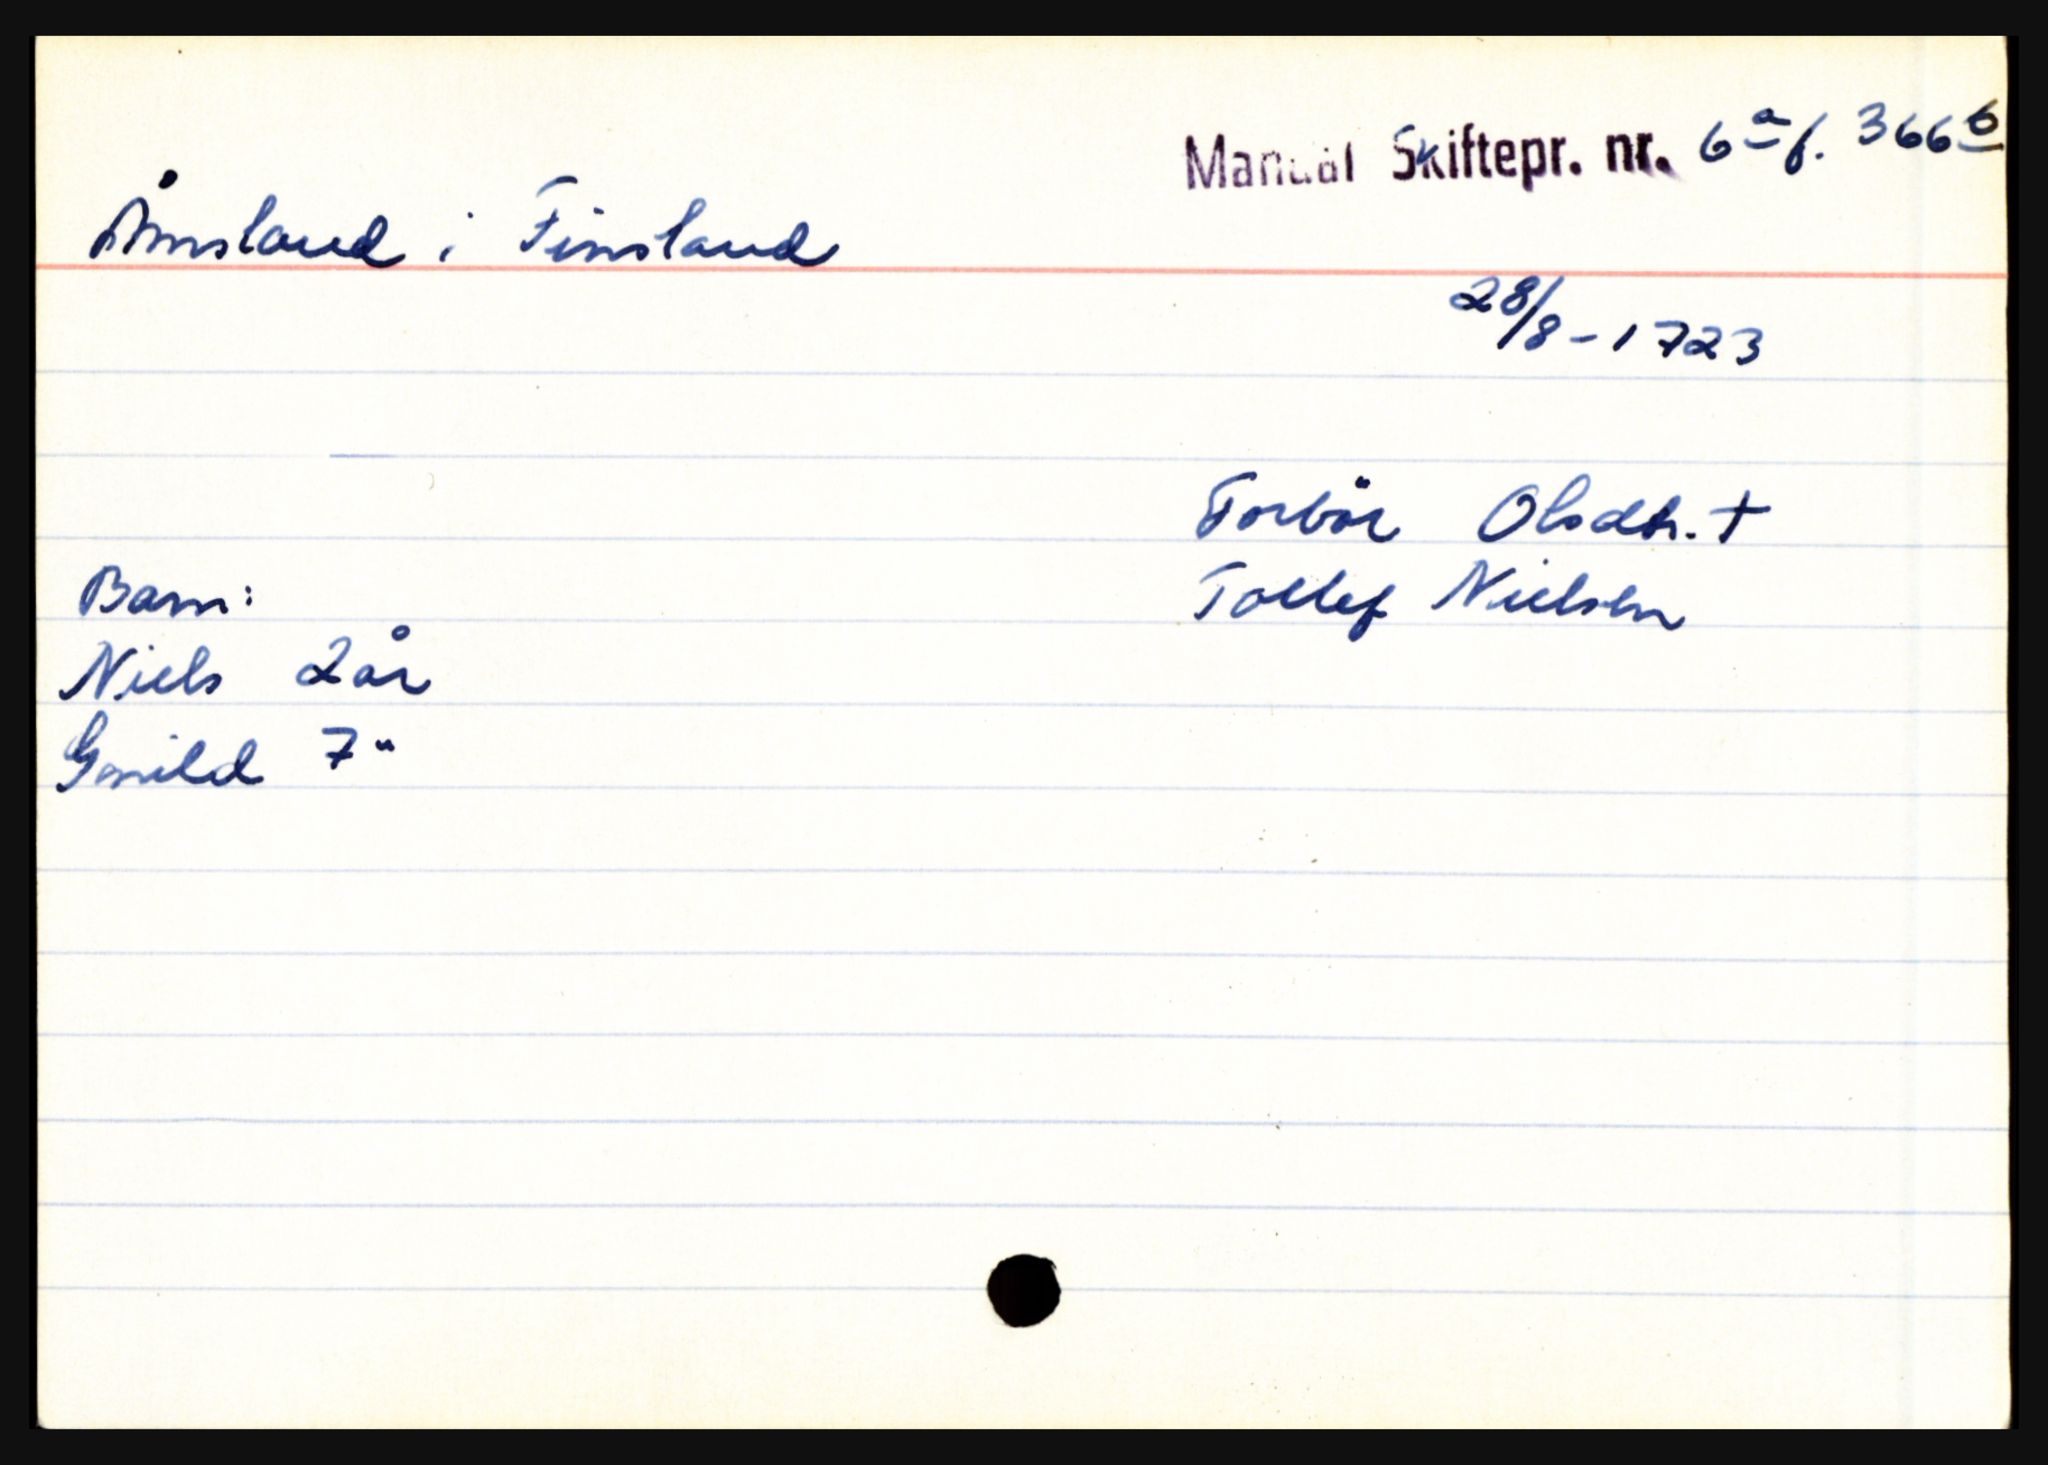 Manual Skiftepr. nr. 6a f. 366b
Åmsland i Finsland
28/8-1723
Torbör Olsdtr. +
Barn: Tollef Nielsen
Niels 2 år
Gonild 7 "